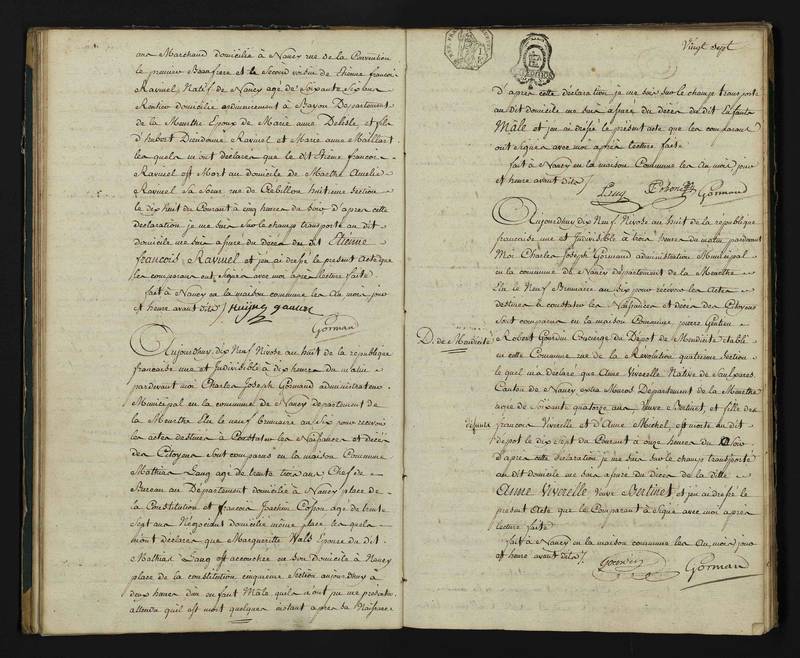 ans Marchand domicilié à Nancy rue de la Convention
le premier Beaufrere et le Second voisin de Etienne francois
Ravinel Natif de Nancy agé de Soixante Six ans
Rentier domicilié ordinairement à Bayon Departement
de la Meurthe Epoux de Marie anne Delisle et fils
d'hubert Dieudonné Ravinel et Marie Anne Maillart
lesquels m'ont declarés que le dit Etienne francois
Ravinel est Mort au domicile de Marthe Amelie
Ravinel sa Sœur rue de Crebillon huitieme Section
le dix huit du Courant à cinq heures du Soir d'apres cette
declaration je me suis sur le champs transporté au dit
domicile me suis assuré du décès du dit Etienne
francois Ravinel et j'en ai dressé le présent Acte que
les comparans ont Signés avec moi après lecture faite
fait à Nancy en la maison commune les An mois jour
et heure avant dits /.
Gormand
Aujourdhuy dix Neuf Nivose an huit de la republique
francaise une et Indivisible à dix heures du Matin
pardevant moi Charles Joseph Gormand administrateur
Municipal en la commune de Nancy departement de
la Meurthe Elu le neuf brumaire an Six pour recevoir
les actes destinés à Constater les Naissances et décès
des Citoyens Sont comparus en la maison Commune
Mathias Lang agé de trente trois ans Chef de
Bureau au Département domicilié à Nancy place de
la Constitution et francois Joachim agé de trente
Sept ans Négociant domicilié même place lesquels
m'ont déclarés que Margueritte Vals Epouse du dit
Mathias Lang est accouchée en son Domicile à Nancy
place de la constitution cinquieme Section aujourdhuy à
deux heures d'un enfant Mâle quils n'ont pu me presenter
attendu quil est mort quelques instant après sa Naissance
Vingt Sept
d'après cette declaration je me suis sur le champs transporté
au dit domicile me suis assuré du décès du dit Enfant
Mâle et j'en ai dressé le présent acte que les comparans
ont Signés avec moi après lecture faite
fait à Nancy en la maison Commune les An mois jour
et heure avant dits /.
Lang Gormand
Aujourdhuy dix Neuf Nivose an huit de la republique
francoise une et Indivisible à trois heures du matin pardevant
Moi Charles Joseph Gormand administrateur Municipal
en la commune de Nancy département de la Meurthe
Elu le Neuf Brumaire an Six pour recevoir les Actes
destinés à constater les Naissances et décès des Citoyens
Sont comparus en la maison Commune pierre
D. de Mendicité
Robert Gourdin Concierge du Dépot de Mendicité établi
en cette Commune rue de la Révolution quatrième Section
le quel m'a declaré que Anne Viverelle Native de Saulxures
Canton de Nancy extra Muros Département de la Meurthe
agée de Soixante quatorze ans Veuve Bertinet, et fille des
défunts
francois Viverelle et d'Anne Michel, est morte au dit
depot le dix Sept du Courant à onze heures du Soir
d'après cette déclaration je me suis sur le champs transporté
au dit domicile me suis assuré du décès de la ditte
Anne Viverelle veuve Bertinet et j'en ai dressé le
présent Acte que le Comparant à Signé avec moi après
lecture faite
fait à Nancy en la maison commune les An, mois jour
et heure avant dits /.
Gourdin Gormand